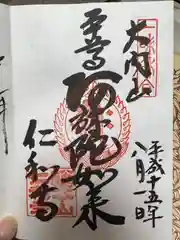 大内山
平成十五年
八月
本尊
阿弥陀如来
仁和寺